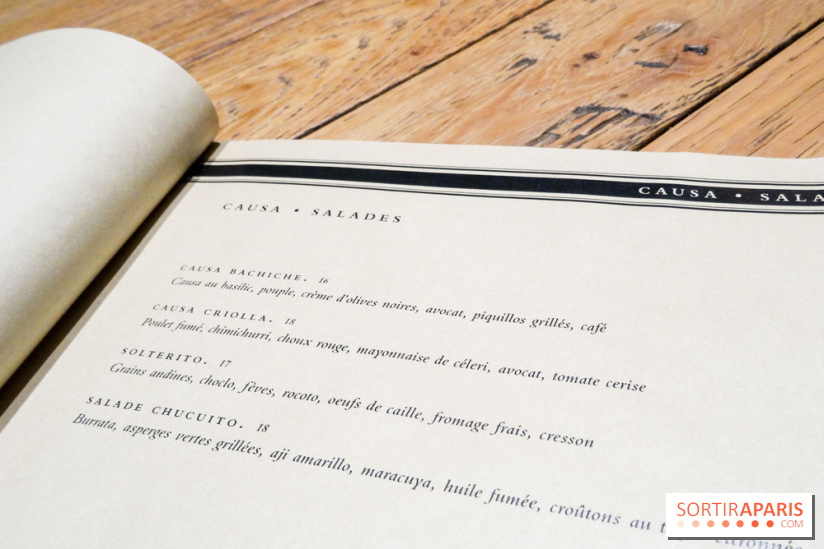 CAUSA • SALA
CAUSA • SALADES
CAUSA BACHICHE. 16
Causa au basilic, pouple, crème d'olives noires, avocat, piquillos grillés, café
CAUSA CRIOLLA. 18
Poulet fumé, chimichurri, choux rouge, mayonnaise de céleri, avocat, tomate cerise
SOLTERITO. 17
Grains andines, choclo, fèves, rocoto, oeufs de caille, fromage frais, cresson
SALADE CHUCUITO. 18
Burrata, asperges vertes grillées, aji amarillo, maracuya, huile fumée, croûtons au
SORTIRAPARIS
.COM